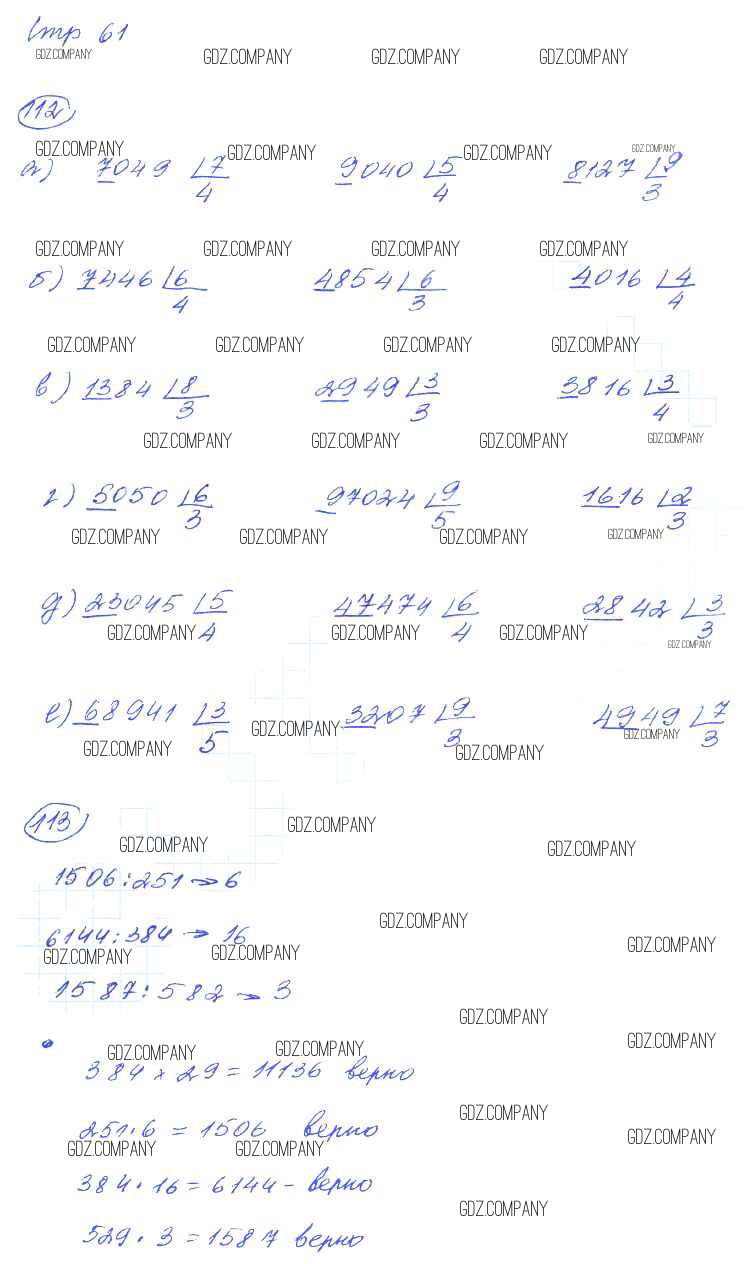 Стр 61
GDZ.COMPANY GDZ.COMPANY GDZ.COMPANY GDZ.COMPANY
112
GDZ.COMPANY GDZ.COMPANY GDZ.COMPANY GDZ.COMPANY
а) 7049 7 9040 5 8127 9
4 4 3
GDZ.COMPANY GDZ.COMPANY GDZ.COMPANY GDZ.COMPANY
б) 7446 6 4854 6 4016 4
4 3 4
GDZ.COMPANY GDZ.COMPANY GDZ.COMPANY GDZ.COMPANY
в) 1384 8 2949 3 3816 3
3 3 4
GDZ.COMPANY GDZ.COMPANY GDZ.COMPANY GDZ.COMPANY
г) 5050 6 97024 9 1616 2
3 5 3
GDZ.COMPANY GDZ.COMPANY GDZ.COMPANY GDZ.COMPANY
д) 23045 5 47474 6 2842 3
4 4 3
GDZ.COMPANY GDZ.COMPANY GDZ.COMPANY GDZ.COMPANY
е) 68941 3 3207 9 4949 7
5 3 3
GDZ.COMPANY GDZ.COMPANY GDZ.COMPANY GDZ.COMPANY
113
GDZ.COMPANY GDZ.COMPANY GDZ.COMPANY
1506:251 → 6
GDZ.COMPANY
6144:384 → 16
GDZ.COMPANY GDZ.COMPANY GDZ.COMPANY
1587:582 → 3
GDZ.COMPANY
GDZ.COMPANY GDZ.COMPANY GDZ.COMPANY
384 × 29 = 11136 верно
GDZ.COMPANY
251·6 = 1506 верно
GDZ.COMPANY GDZ.COMPANY GDZ.COMPANY
384·16 = 6144 - верно
GDZ.COMPANY
529·3 = 1587 верно